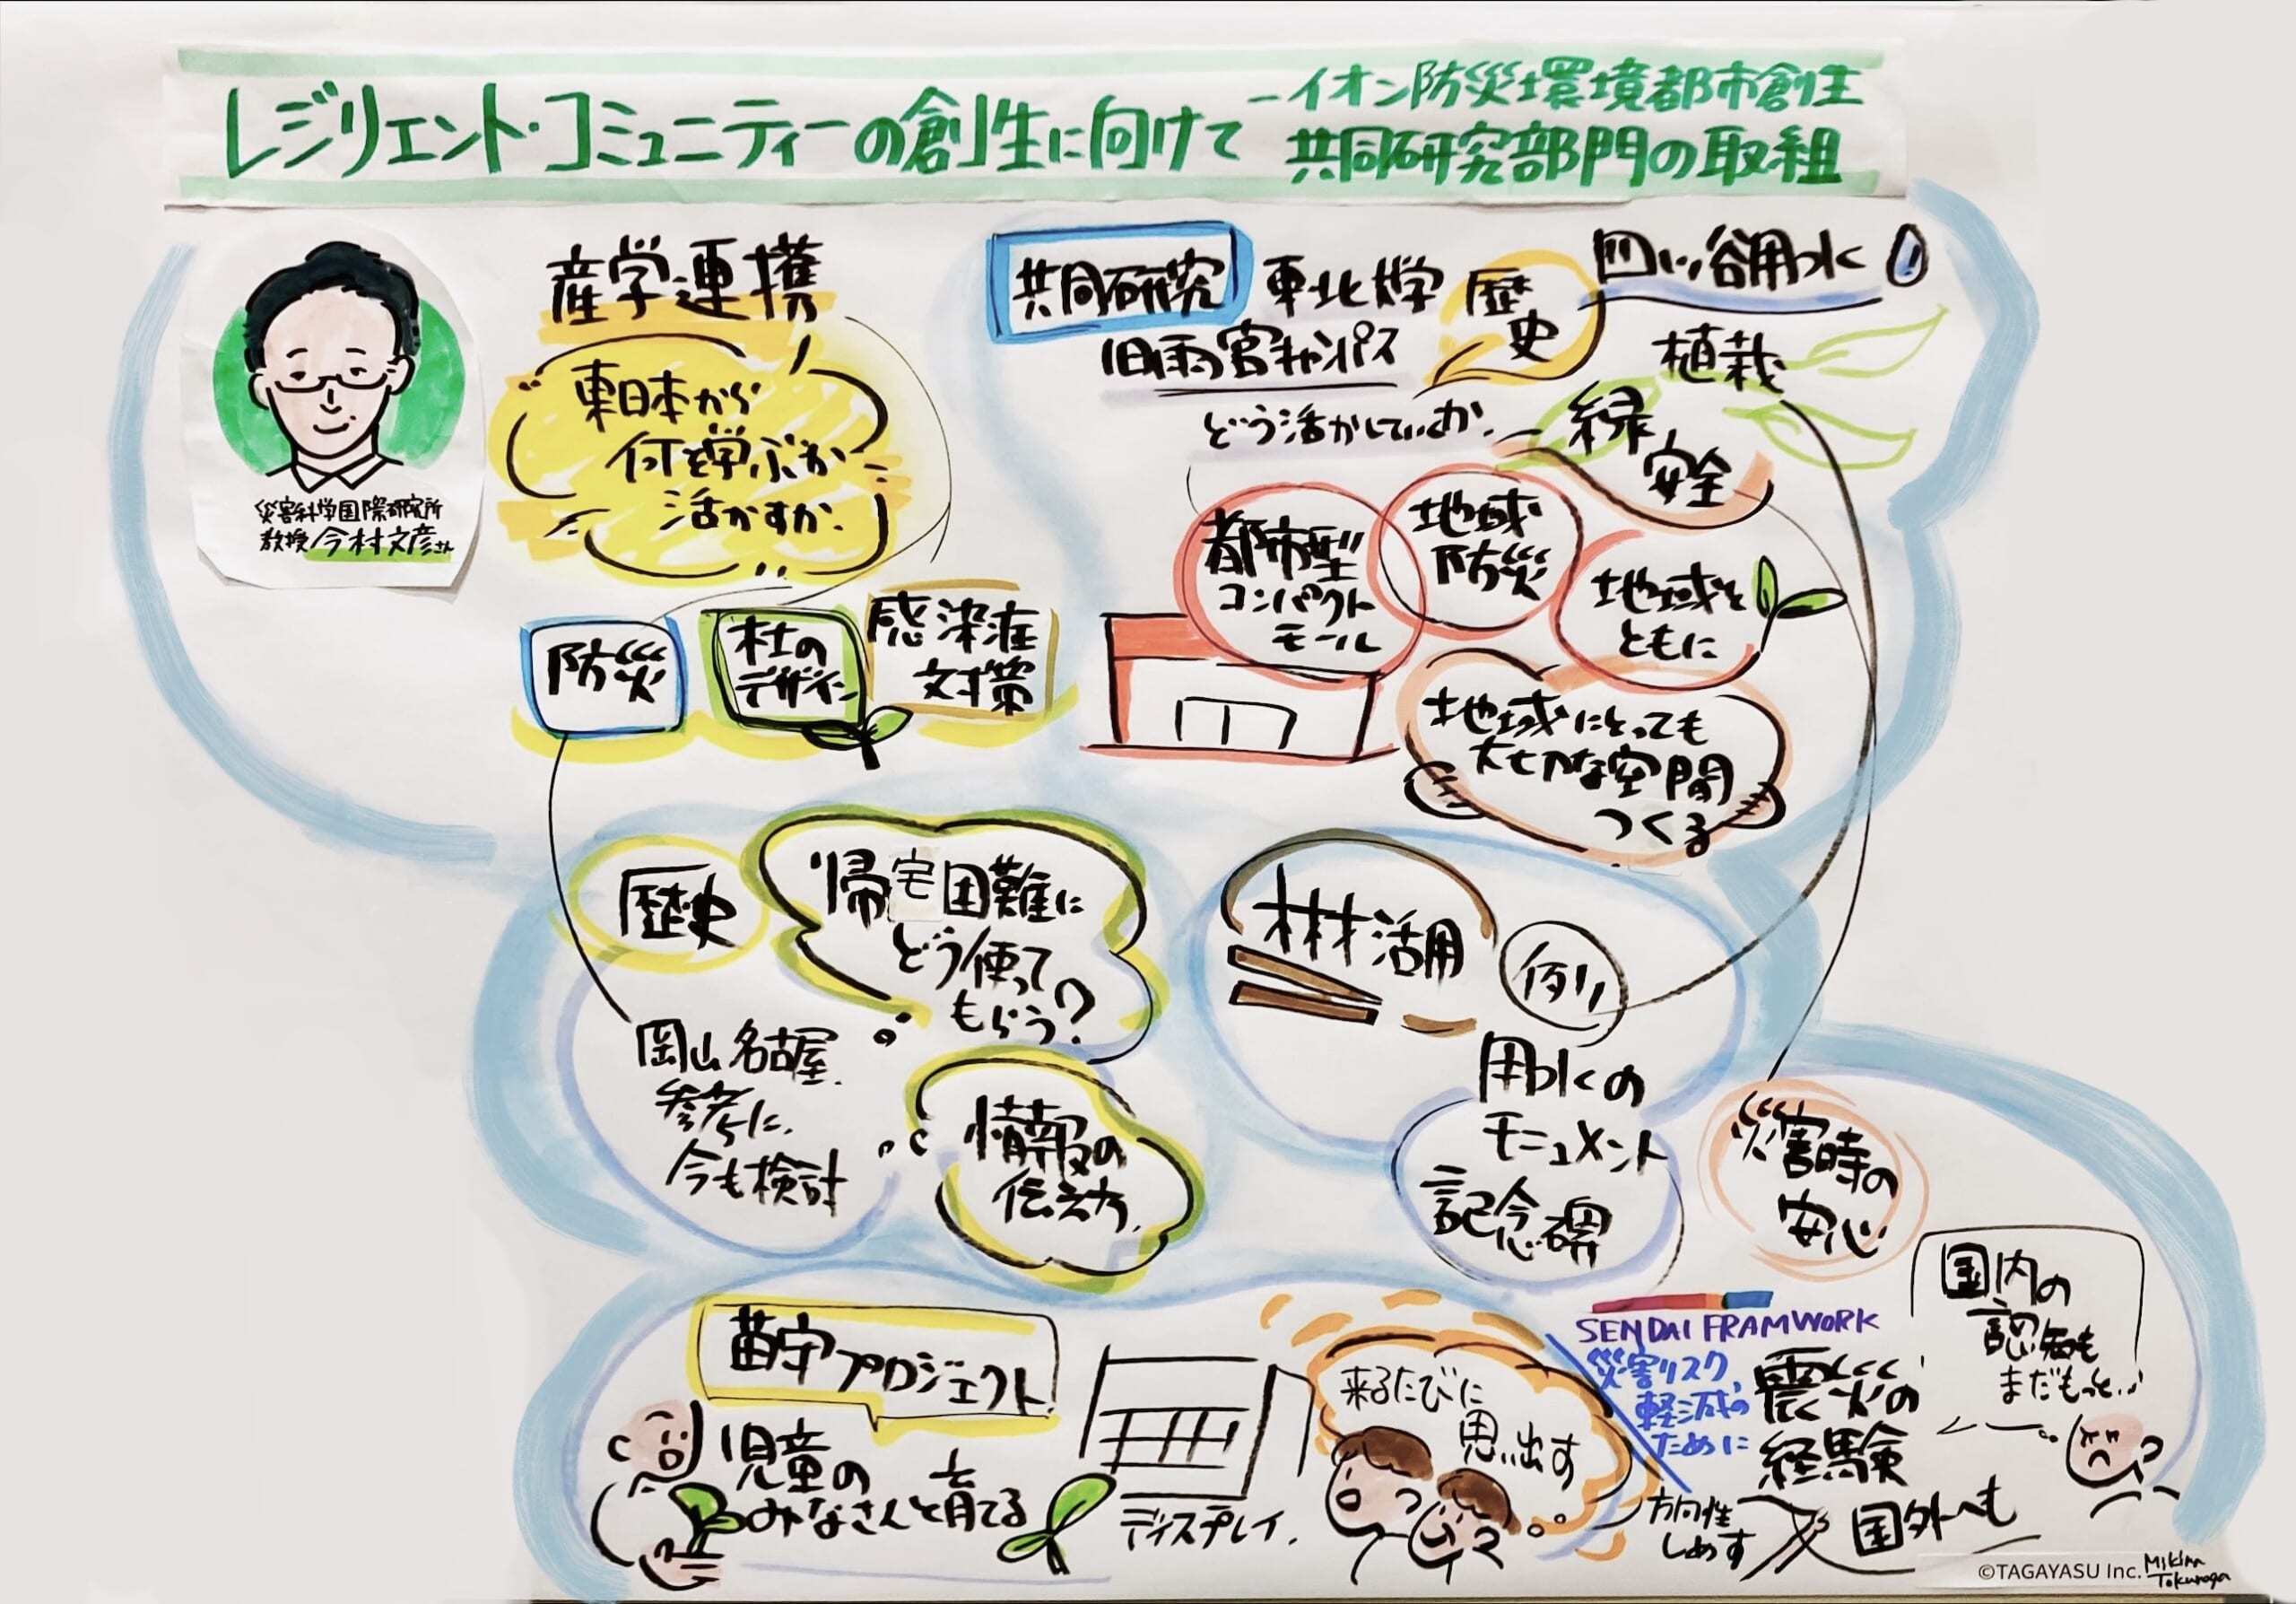 レジリエント・コミュニティーの創生に向けて
－イオン防災環境都市創生
共同研究部門の取組
災害科学国際研究所
教授 今村文彦さん
産学連携
東日本から
何を学ぶか
活かすか.
防災
杜の
デザイン
感染症
対策
共同研究
東北大学
旧雨宮キャンパス
歴
史
四ツ谷用水
植栽
緑
安全
どう活かしていくか.
都市型
コンパクト
モール
地域
防災
地域と
ともに
地域にとっても
大切な空間
つくる
歴史
帰宅困難に
どう使って
もらう?
岡山名古屋.
参考に.
今も検討
情報の
伝え方.
材活用
例
用水の
モニュメント
記念碑
災害時の
安心
苗守プロジェクト!
児童の
みなさんと育てる
ディスプレイ.
来るたびに
思い出す
SENDAI FRAMWORK
災害リスク,
軽減の
ために
震災の
経験
方向性
しめす
国外へも
国内の
認知も
まだもっと..
©TAGAYASU Inc.
Mikina
Tokunaga